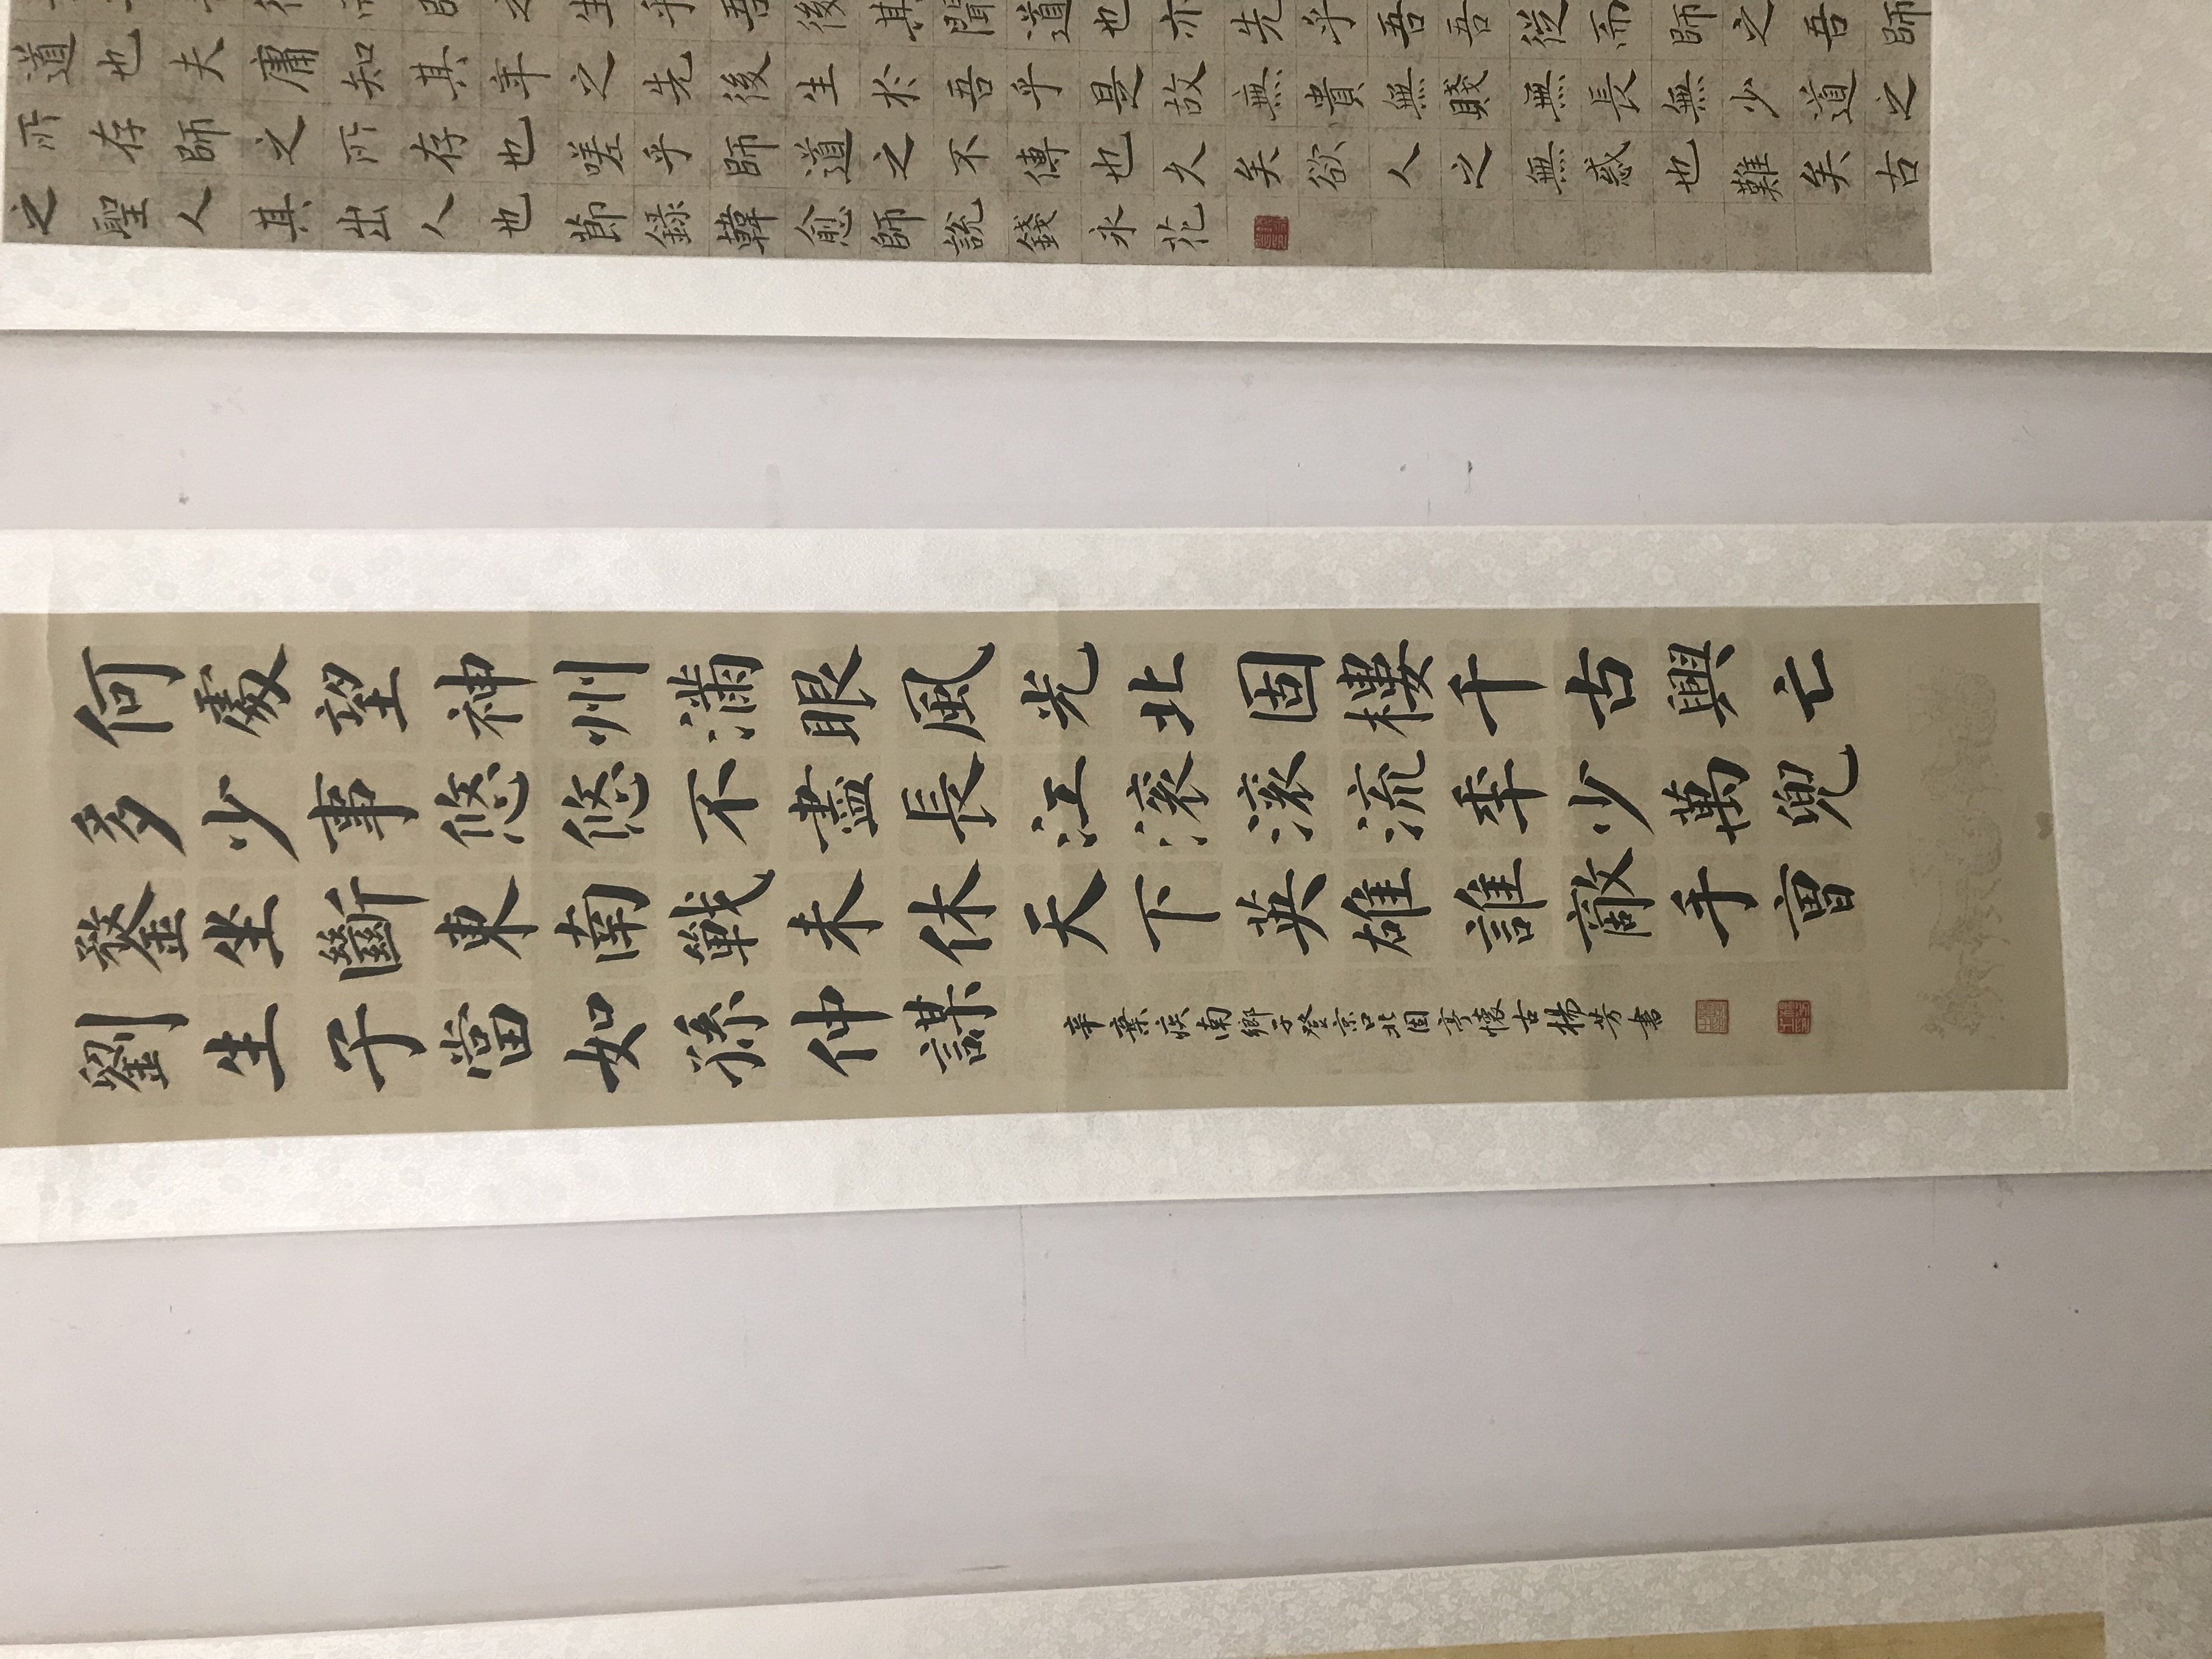 生乎吾後其聞道也亦先乎吾吾從而師之吾師
道也夫庸知其年之先後生於吾乎是故無貴無賤無長無少道之
所存師之所存也嗟乎師道之不傳也久矣欲人之無惑也難矣古
之聖人其出人也節錄韓愈師說錢永花
何處望神州滿眼風光北固樓千古興亡
多少事悠悠不盡長江滾滾流年少萬兜
鍪坐斷東南戰未休天下英雄誰敵手曹
劉生子當如孫仲謀
辛棄疾南鄉子登京口北固亭懷古楊芳書